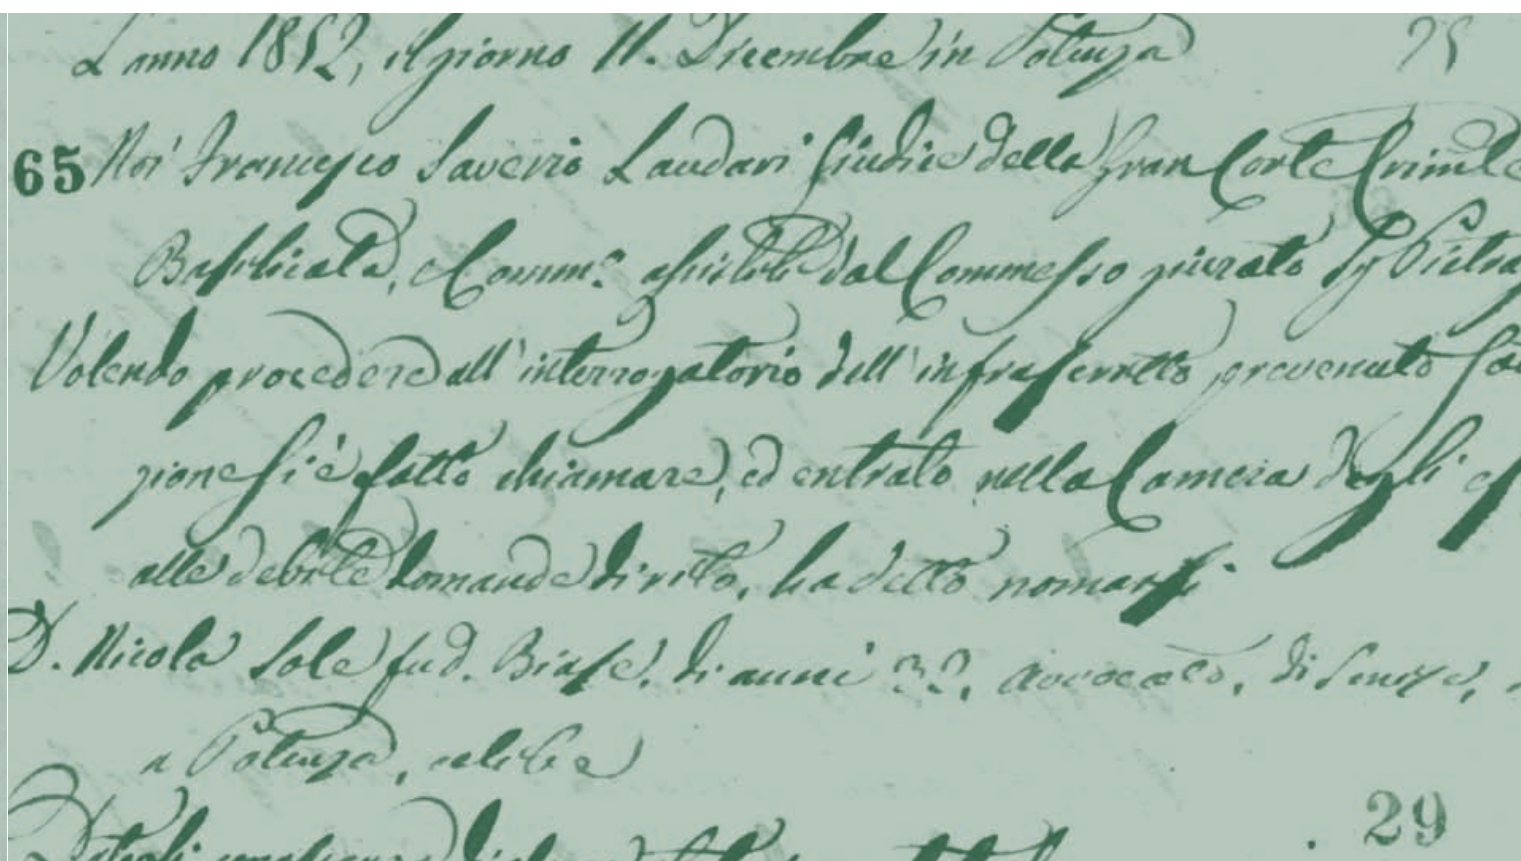 L'anno 1852, il giorno 11. Dicembre in Potenza
65 Noi Francesco Saverio Laudari Giudice della Gran Corte Crimle
Basilicata, Comm.e assistiti dal Commesso giurato
Volendo procedere all'interrogatorio dell'infrascritto prevenuto
zione si è fatto chiamare, ed entrato nella Camera degli
alle debite domande di rito, ha detto nomarsi.
D. Nicola Sole fu d. Biase, di anni 32, avvocato, di Senise,
a Potenza, celibe
29